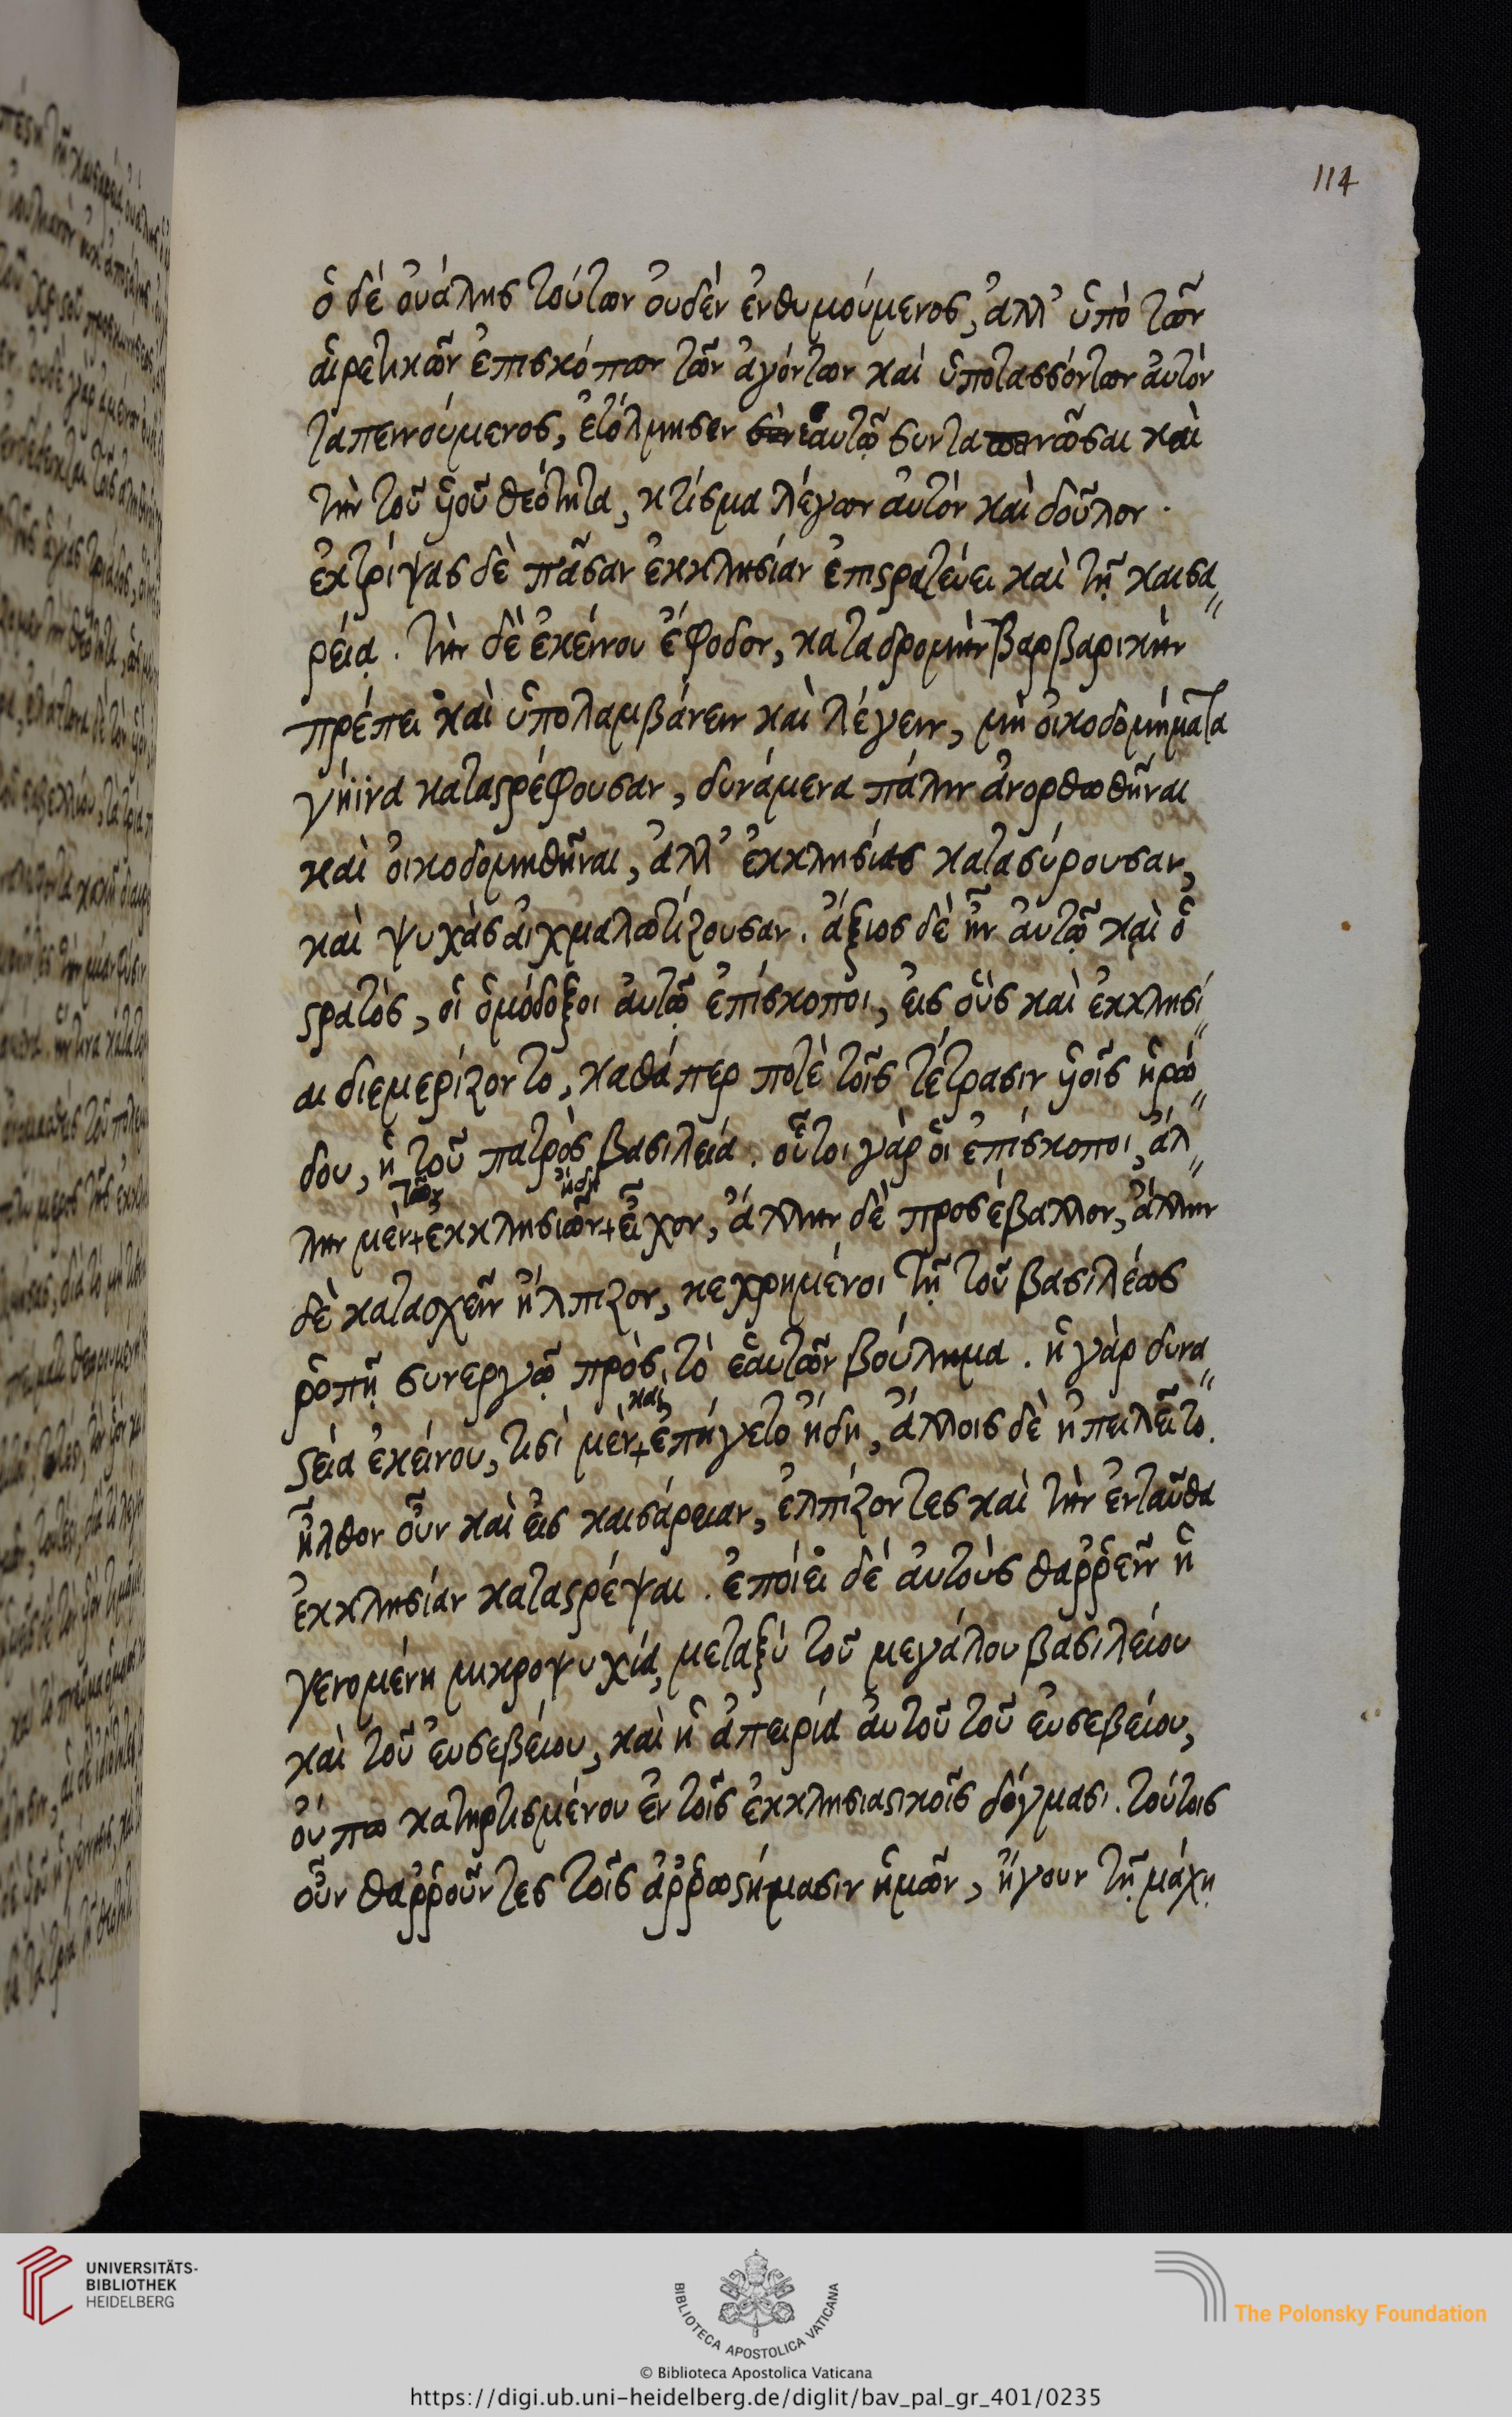 114
ὁ δὲ ὀυάλης τούτων ὀυδὲν ἐνθυμούμενος, ἀλλ' ὑπὸ τῶν
ἁιρετικῶν ἐπισκόπων τῶν ἀγόντων καὶ ὑποτασσόντων ἀυτὸν
ταπεινούμενος, ἐτόλμησεν ἑαυτῷ συνταπεινῶσαι καὶ
τὴν τοῦ ὑιοῦ θεότητα, κτίσμα λέγων ἀυτὸν καὶ δοῦλον.
ἐκτρίψας δὲ πᾶσαν ἐκκλησίαν ἐπιστρατεύει καὶ τῇ καισα
ρείᾳ. τὴν δὲ ἐκείνου ἔφοδον, καταδρομὴν βαρβαρικὴν
πρέπει καὶ ὑπολαμβάνειν καὶ λέγειν, μὴ ὀικοδομήματα
γήϊνα καταστρέφουσαν, δυνάμενα πάλιν ἀνορθωθῆναι
καὶ ὀικοδομηθῆναι, ἀλλ' ἐκκλησίας κατασύρουσαν,
καὶ ψυχὰς ἀιχμαλωτίζουσαν. ἄξιος δὲ ἦν ἀυτῷ καὶ ὁ
στρατὸς, ὁι ὁμόδοξοι ἀυτῷ ἐπίσκοποι, εἰς ὅυς καὶ ἐκκλησί
αι διεμερίζοντο, καθάπερ ποτὲ τοῖς τέτρασιν ὑιοῖς ἡρώ
δου, ἡ τοῦ πατρὸς βασιλεία. οὗτοι γὰρ ὁι ἐπίσκοποι, ἄλ
τῶν ἤδη
λην μὲν + ἐκκλησιῶν + εἶχον, ἄλλην δὲ προσέβαλλον, ἄλλην
δὲ κατασχεῖν ἤλπιζον, κεχρημένοι τῇ τοῦ βασιλέως
ῥοπῇ συνεργῷ πρὸς τὸ ἑαυτῶν βούλημα. ἡ γὰρ δυνα
καὶ
στεία ἐκείνου, τισὶ μὲν + ἐπήγετο ἤδη, ἄλλοις δὲ ἠπειλεῖτο.
ἦλθον οὖν καὶ εἰς καισάρειαν, ἐλπίζοντες καὶ τὴν ἐνταῦθα
ἐκκλησίαν καταστρέψαι. ἐποίει δὲ ἀυτοὺς θαῤῥεῖν ἡ
γενομένη μικροψυχία, μεταξὺ τοῦ μεγάλου βασιλείου
καὶ τοῦ ἐυσεβείου, καὶ ἡ ἀπειρία ἀυτοῦ τοῦ ἐυσεβείου,
ὄυπω κατηρτισμένου ἐν τοῖς ἐκκλησιαστικοῖς δόγμασι. τούτοις
οὖν θαῤῥοῦντες τοῖς ἀῤῥωστήμασιν ἡμῶν, ἤγουν τῇ μάχῃ
UNIVERSITÄTS-
BIBLIOTHEK
HEIDELBERG
BIBLIOTECA APOSTOLICA VATICANA
The Polonsky Foundation
© Biblioteca Apostolica Vaticana
https://digi.ub.uni-heidelberg.de/diglit/bav_pal_gr_401/0235